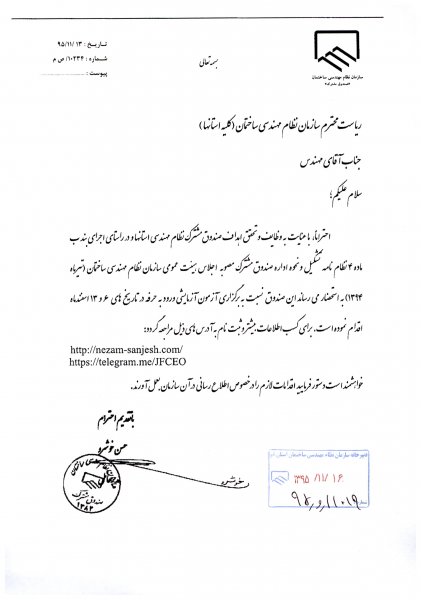 تاریخ : ۹۵/۱۱/۱۳
شماره : ۱۰۲۳۶/ص م
پیوست :
بسمه تعالی
سازمان نظام مهندسی ساختمان
صندوق مشترک
ریاست محترم سازمان نظام مهندسی ساختمان (کلیه استانها)
جناب آقای مهندس
سلام علیکم؛
احتراماً، با عنایت به وظایف و تحقق اهداف صندوق مشترک نظام مهندسی استانها و در راستای اجرای بند ب
ماده ۴ نظام نامه تشکیل و نحوه اداره صندوق مشترک مصوبه اجلاس هیئت عمومی سازمان نظام مهندسی ساختمان (تیرماه
۱۳۹۴) به استحضار می رساند این صندوق نسبت به برگزاری آزمون آزمایشی ورود به حرفه در تاریخ های ۶ و ۱۳ اسفندماه
اقدام نموده است. برای کسب اطلاعات بیشتر و ثبت نام به آدرس های ذیل مراجعه گردد:
http://nezam-sanjesh.com/
https://telegram.me/JFCEO
خواهشمند است دستور فرمایید اقدامات لازم را در خصوص اطلاع رسانی در آن سازمان بعمل آورند.
با تقدیم احترام
حسن خوشرو
خوشرو
صندوق مشترک
۱۳۸۲
دبیرخانه سازمان نظام مهندسی ساختمان استان
۱۳۹۵ /۱۱/ ۱۶